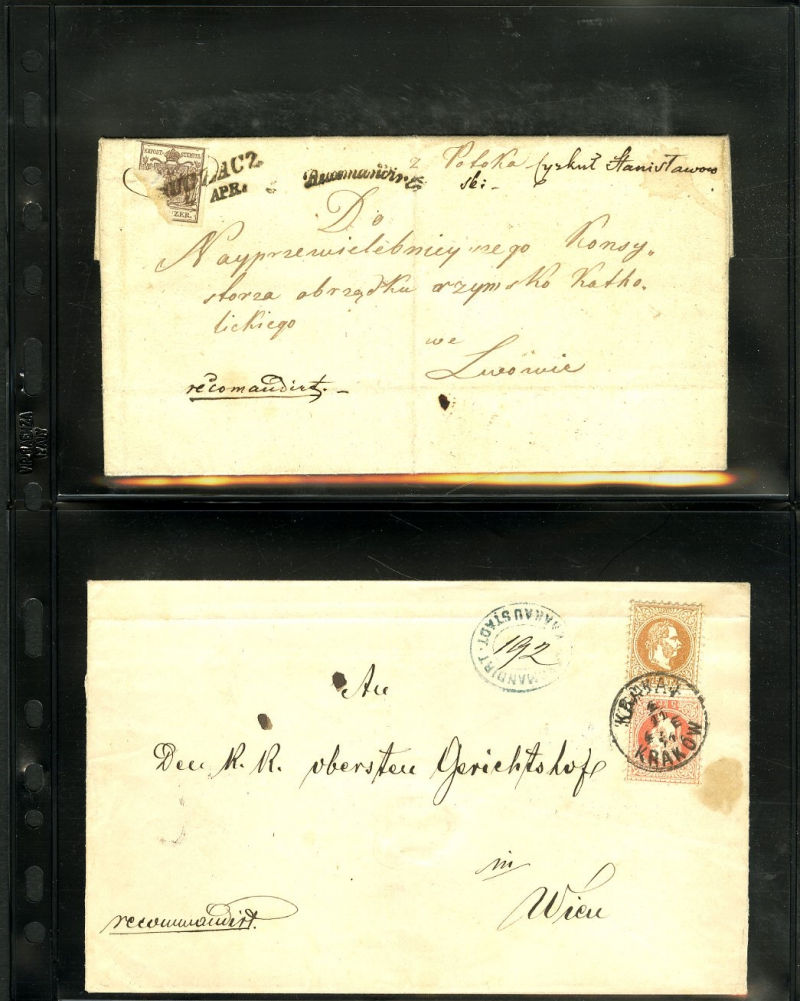 KREUZER
APR.
Recomandirt
z Potoka cyrkuł Stanisławow
ski
Do
Nayprzewielebnieyszego Konsy„
storza obrządku rzymsko Katho„
lickiego
we
Lwowie
recomandirt.
RECOMMANDIRT. KRAKAU STADT.
192
KRAKAU
KRAKÓW
An
Den K. K. obersten Gerichtshof
in
Wien
recommandirt.